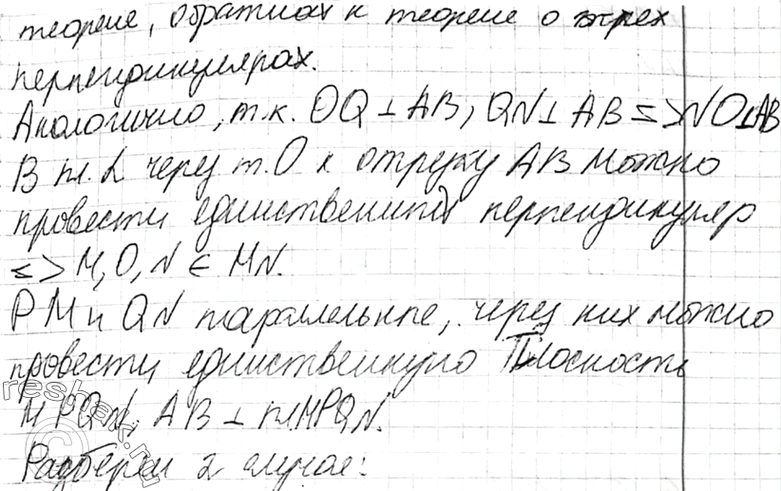 теореме, обратной к теореме о трех
перпендикулярах.
Аналогично, т.к. OQ ⊥ AB, QN ⊥ AB <=> NO ⊥ AB
В пл. α через т. O к отрезку AB можно
провести единственный перпендикуляр
<=> M, O, N ∈ MN.
PM и QN параллельные, через них можно
провести единственную плоскость
MPQN, AB ⊥ пл. MPQN.
Разберем 2 случая:
reshak.ru